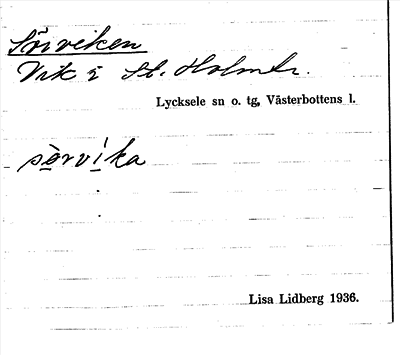 Sörviken
Vik i St. Holmtr.
Lycksele sn o. tg, Västerbottens l.
sörvika
Lisa Lidberg 1936.